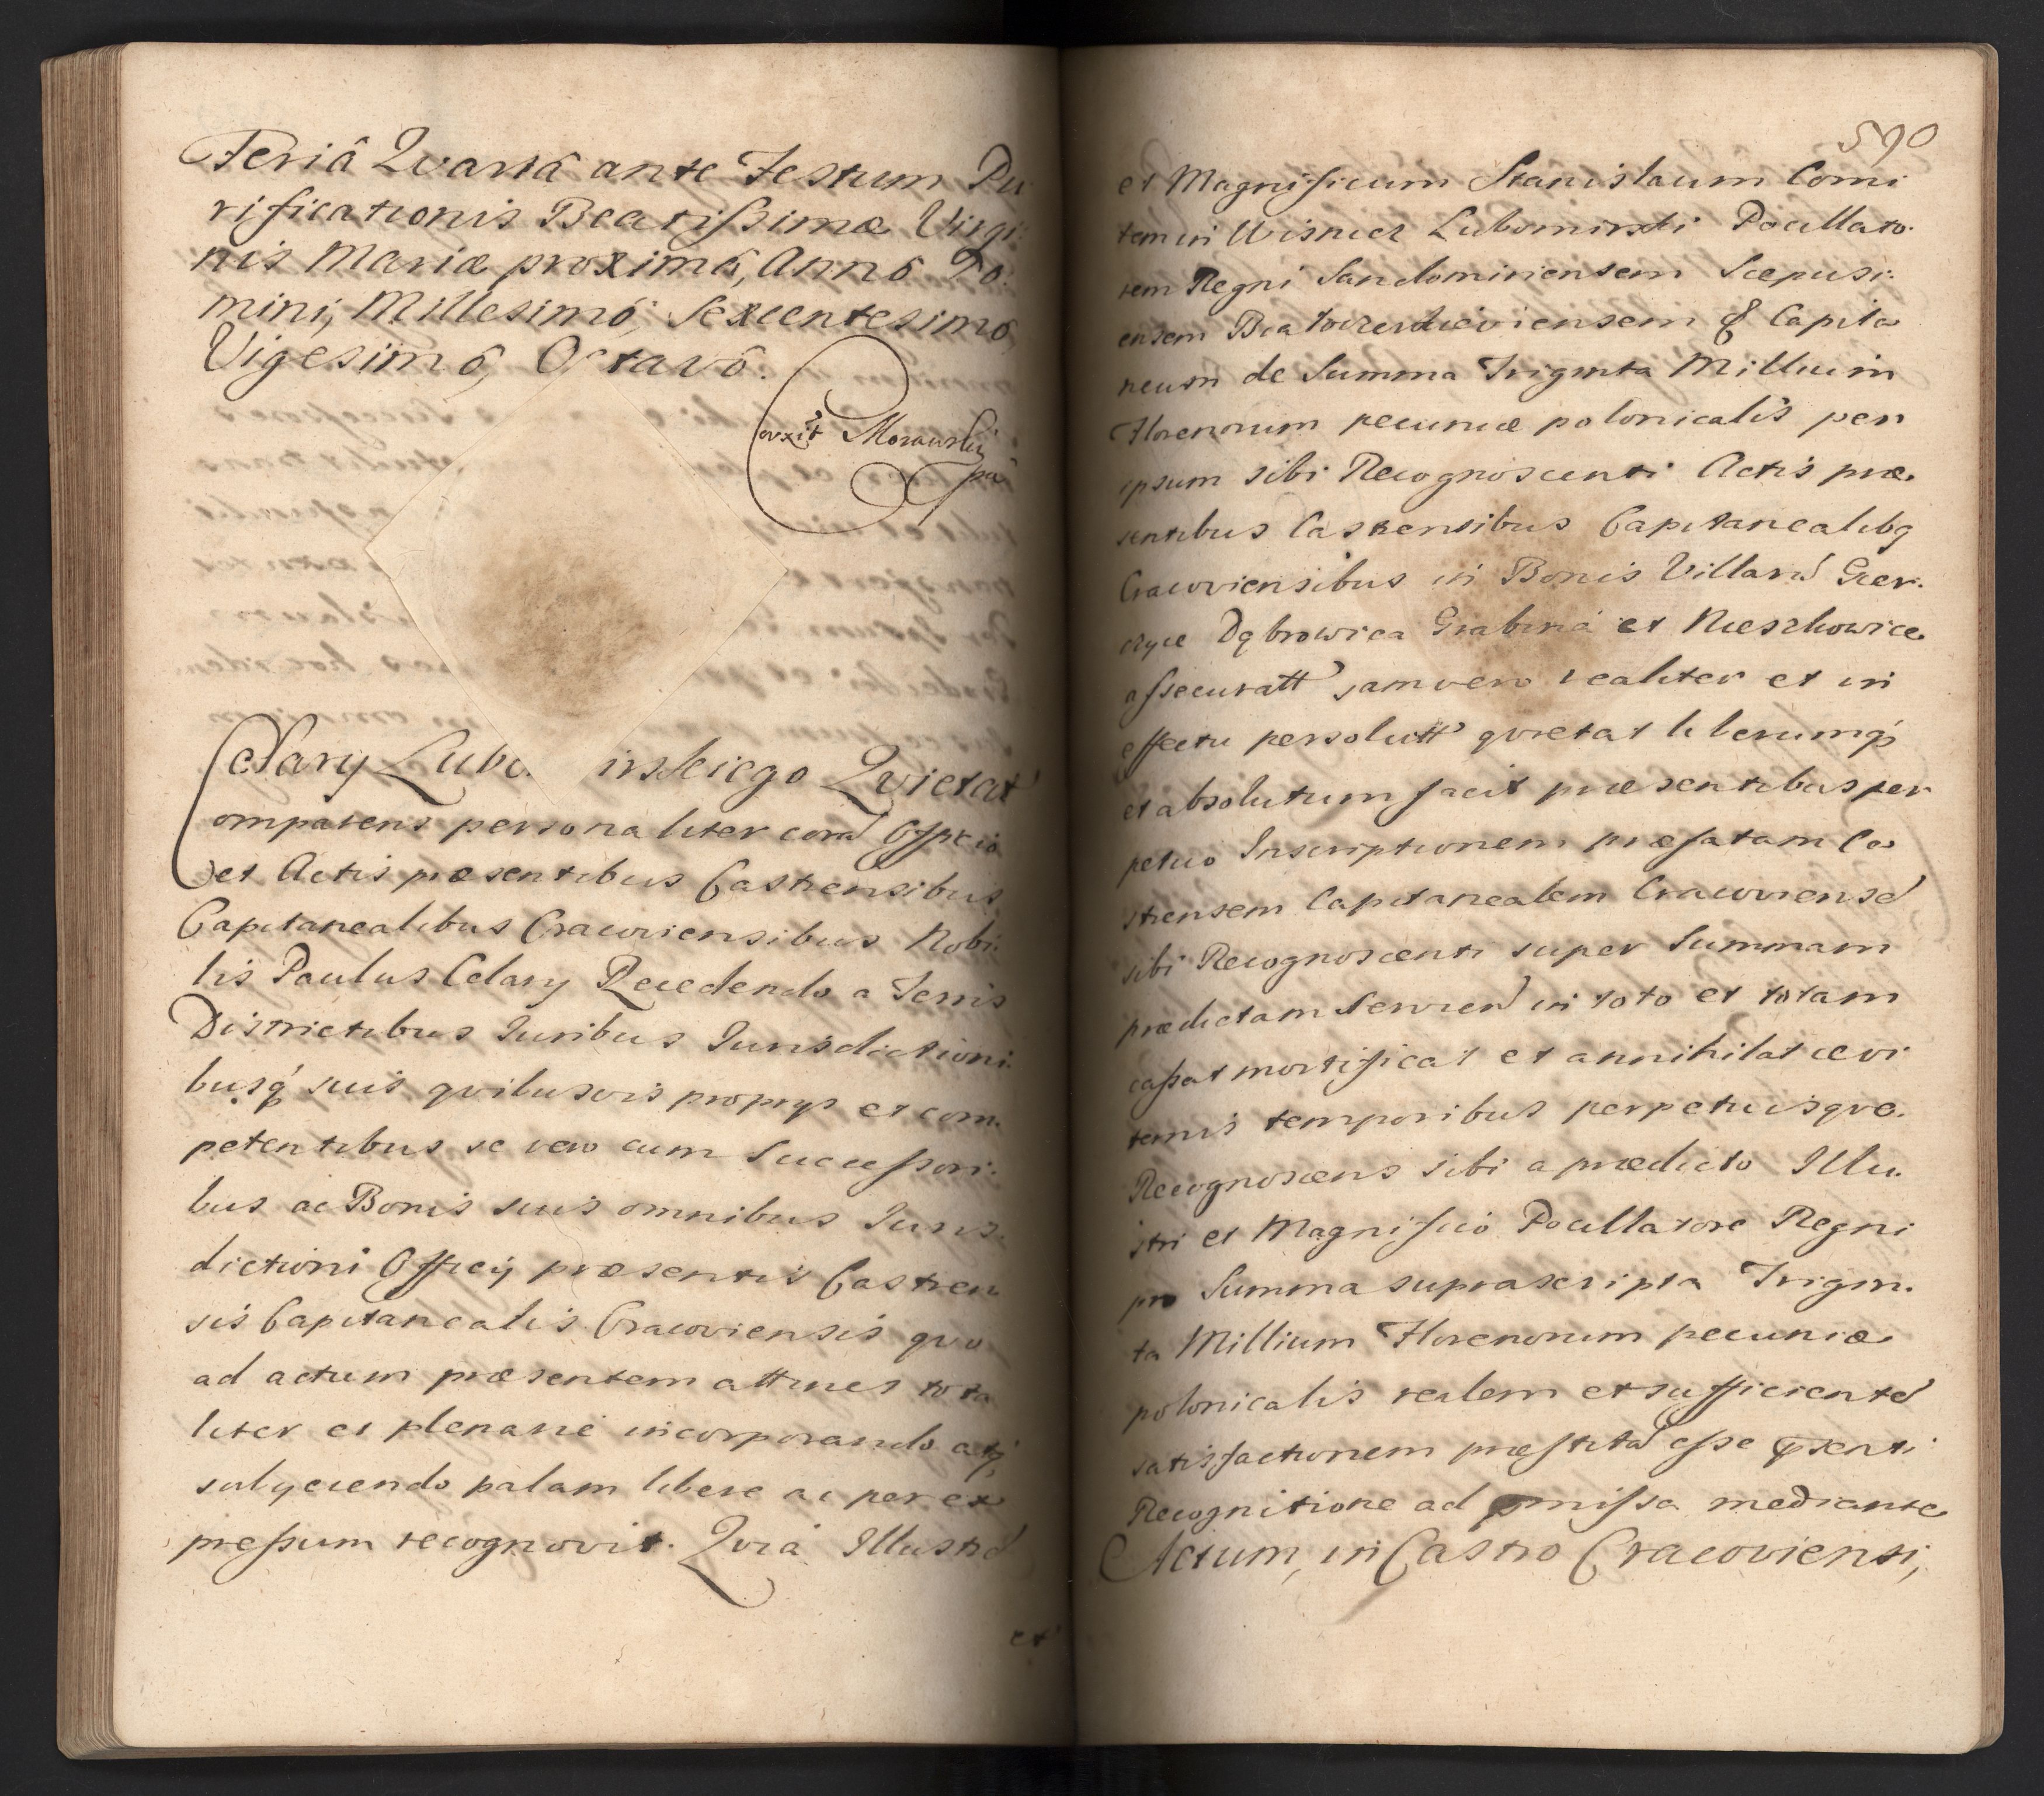 Feriâ Qvartâ ante Festum Pu
rificationis Beatissimæ Virgi
nis Mariæ proximâ, Annô Do:
mini, Millesimô, Sexcentesimô
Vigesimô, Octavô.
Morawski
Celary Lubo irskiego Qvietat
omparens personaliter corã Officio
et Actis præsentibus Castrensibus
Capitanealibus Cracoviensibus Nobi:
lis Paulus Celary Recedendo a Terris
Districtibus Iuribus Iurisdictioni:
busq suis qvibusvis proprys et com.
petentibus se vero cum Successori:
bus ac Bonis suis omnibus Iuris.
dictioni Officy præsentis Castren
sis Capitanealis Cracoviensis qvo
ad actum præsentem attinet tota
liter et plenarie incorporando atq
subyciendo palam libere ac per ex
pressum recognovit. Qvia Illustrẽ
et
590
et Magnificum Stanislaum Comi
tem in Wisnicz Lubomirski Pocillato.
rem Regni Sandomiriensem Scepusi:
ensem & Capita
neum de Summa Triginta Millium
Florenorum pecuniæ polonicalis per
ipsum sibi Recognoscenti Actis præ.
sentibus Castrensibus Capitanealibq
Cracoviensibus in Bonis Villarũ Gier.
czyce Dąbrowica Grabina et Nieszkowice
assecuratt jam vero realiter et in
effectu persolutt qvietat liberumq
et absolutum facit præsentibus per
petuo Inscriptionem præfatam Ca
strensem Capitanealem Cracoviensẽ
sibi Recognoscenti super Summam
prædictam Servien in toto et totam
cassat mortificat et annihilat ævi
ternis temporibus perpetuisqve.
Recognoscens sibi a prædicto Illu.
stri et Magnifico Pocillatore Regni
pro Summa suprascripta Trigin.
ta Millium Florenorum pecuniæ
polonicalis realem et sufficientẽ
satisfactionem præstitã esse pꝛsenti
Recognitione ad pꝛmissa mediante
Actum, in Castro Cracoviensi,